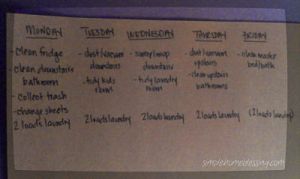 MONDAY
- clean fridge
- clean downstairs
bathroom
- collect trash
- change sheets
2 loads laundry
TUESDAY
- dust/vacuum
downstairs
- tidy kids
rooms
2 loads laundry
WEDNESDAY
- sweep/mop
downstairs
- tidy laundry
room
2 loads laundry
THURSDAY
- dust/vacuum
upstairs
- clean upstairs
bathrooms
2 loads laundry
FRIDAY
- clean master
bed/bath
(2 loads laundry)
simplehomeblessing.com